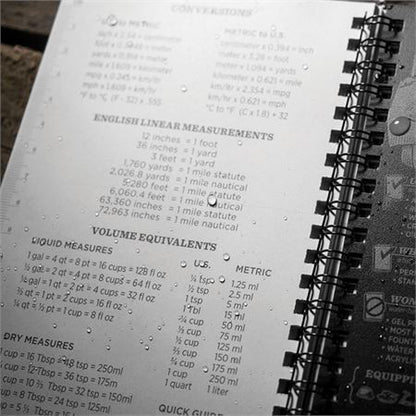 CONVERSIONS
to METRIC
inch x 2.54 = centimeter
foot x 0.3048 = meter
yards x 0.914 = meter
mile x 1.609 = kilometer
mpg x 0.245 = km/ltr
mph x 1.609 = km/hr
°F to °C (F - 32) x .555
METRIC to U.S.
centimeter x 0.394 = inch
meter x 3.28 = foot
meter x 1.094 = yards
kilometer x 0.621 = mile
km/ltr x 2.354 = mpg
km/hr x 0.621 = mph
°C to °F (C x 1.8) + 32
ENGLISH LINEAR MEASUREMENTS
12 inches = 1 foot
36 inches = 1 yard
3 feet = 1 yard
1,760 yards = 1 mile statute
2,026.8 yards = 1 mile nautical
5,280 feet = 1 mile statute
6,060.4 feet = 1 mile nautical
63,360 inches = 1 mile statute
72,963 inches = 1 mile nautical
VOLUME EQUIVALENTS
LIQUID MEASURES
1 gal = 4 qt = 8 pt = 16 cups = 128 fl oz
½ gal = 2 qt = 4 pt = 8 cups = 64 fl oz
¼ gal = 1 qt = 2 pt = 4 cups = 32 fl oz
½ qt = 1 pt = 2 cups = 16 fl oz
¼ qt = ½ pt = 1 cup = 8 fl oz
DRY MEASURES
1 cup = 16 Tbsp = 48 tsp = 250ml
¾ cup = 12 Tbsp = 36 tsp = 175m
cup = 10 ⅔ Tbsp = 32 tsp = 150ml
cup = 8 Tbsp = 24 tsp = 125ml
U.S. METRIC
¼ tsp 1.25 ml
½ tsp 2.5 ml
1 tsp 5 ml
1 Tbl 15 ml
¼ cup 50 ml
⅓ cup 75 ml
½ cup 125 ml
⅔ cup 150 ml
¾ cup 175 ml
1 cup 250 ml
1 quart 1 liter
QUICK GUIDE
EQUIPP